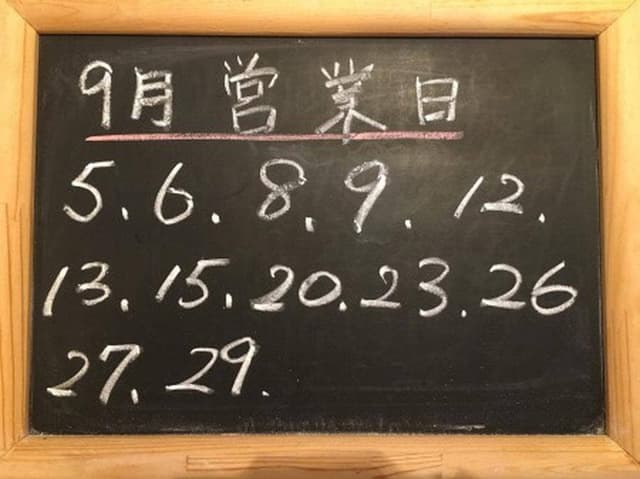 9月営業日
5. 6. 8. 9. 12.
13. 15. 20. 23. 26
27. 29.